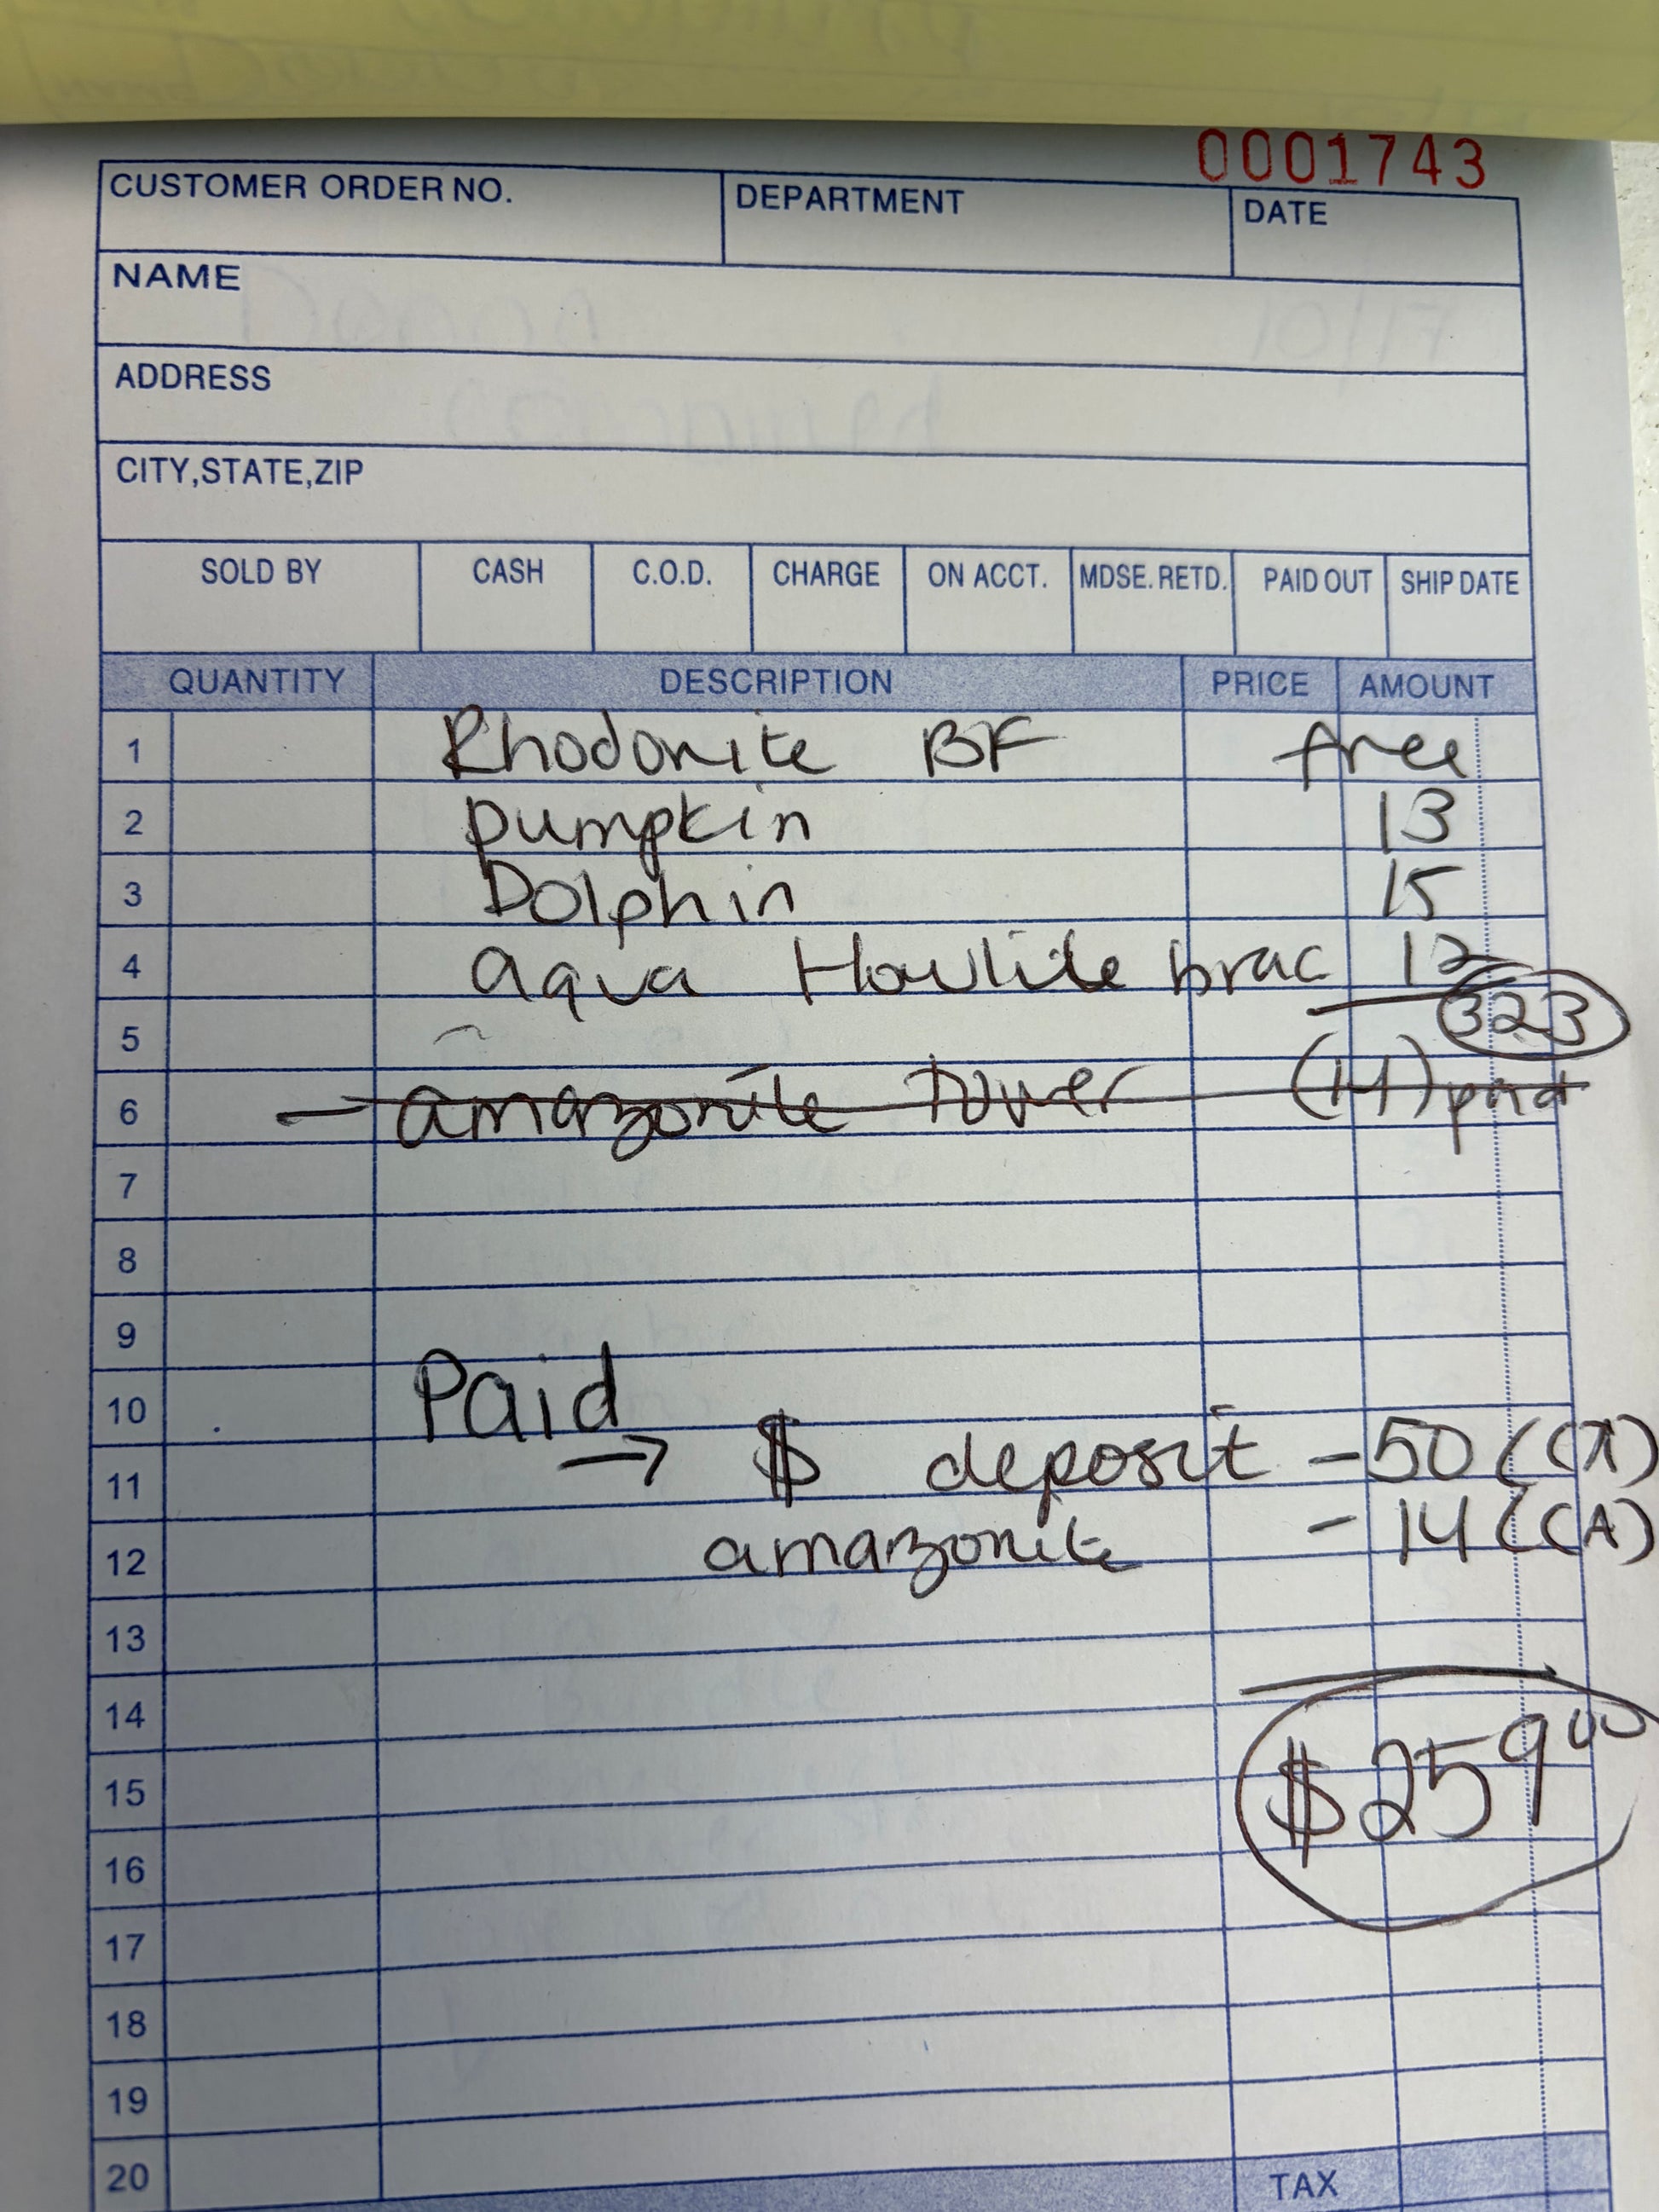 0001743
CUSTOMER ORDER NO. DEPARTMENT DATE
NAME
ADDRESS
CITY,STATE,ZIP
SOLD BY CASH C.O.D. CHARGE ON ACCT. MDSE. RETD. PAID OUT SHIP DATE
QUANTITY DESCRIPTION PRICE AMOUNT
1 Rhodonite BF free
2 pumpkin 13
3 Dolphin 15
4 aqua Howlite brac 12
323
5
6 - amazonite tower (14) paid
7
8
9
10 Paid
11 → $ deposit - 50
12 amazonite - 14 (CA)
13
14
15 $259 00
16
17
18
19
20
TAX